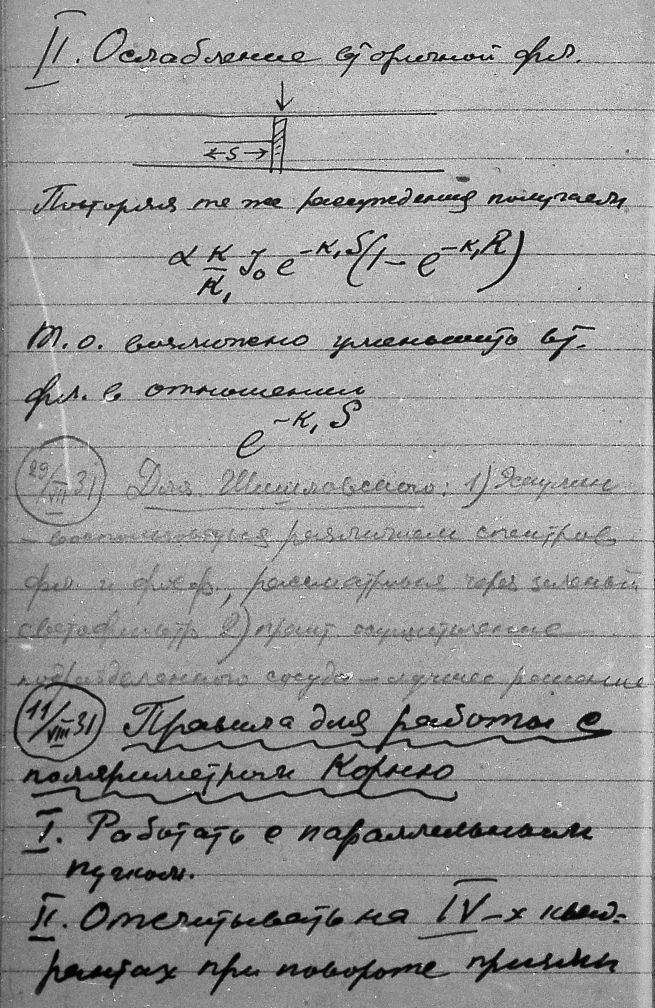 II. Ослабление вторичной фл.
← S →
Повторяя те же рассуждения получаем
α K/K₁ J₀ e^{-K₁S}(1 - e^{-K₁R})
Т. о. возможно уменьшить вт.
фл. в отношении
e^{-K₁S}
29/VII 31 Для Шишловского: 1)
- воспользоваться различием спектров
фл и фосф., рассматривая через зеленый
светофильтр 2) осуществление
подразделенного сосуда – лучшее решение
11/VIII 31 Правила для работы с
поляриметром Корню
I. Работать с параллельным
пучком.
II. Отсчитывать на IV-х квад-
рантах при повороте призмы